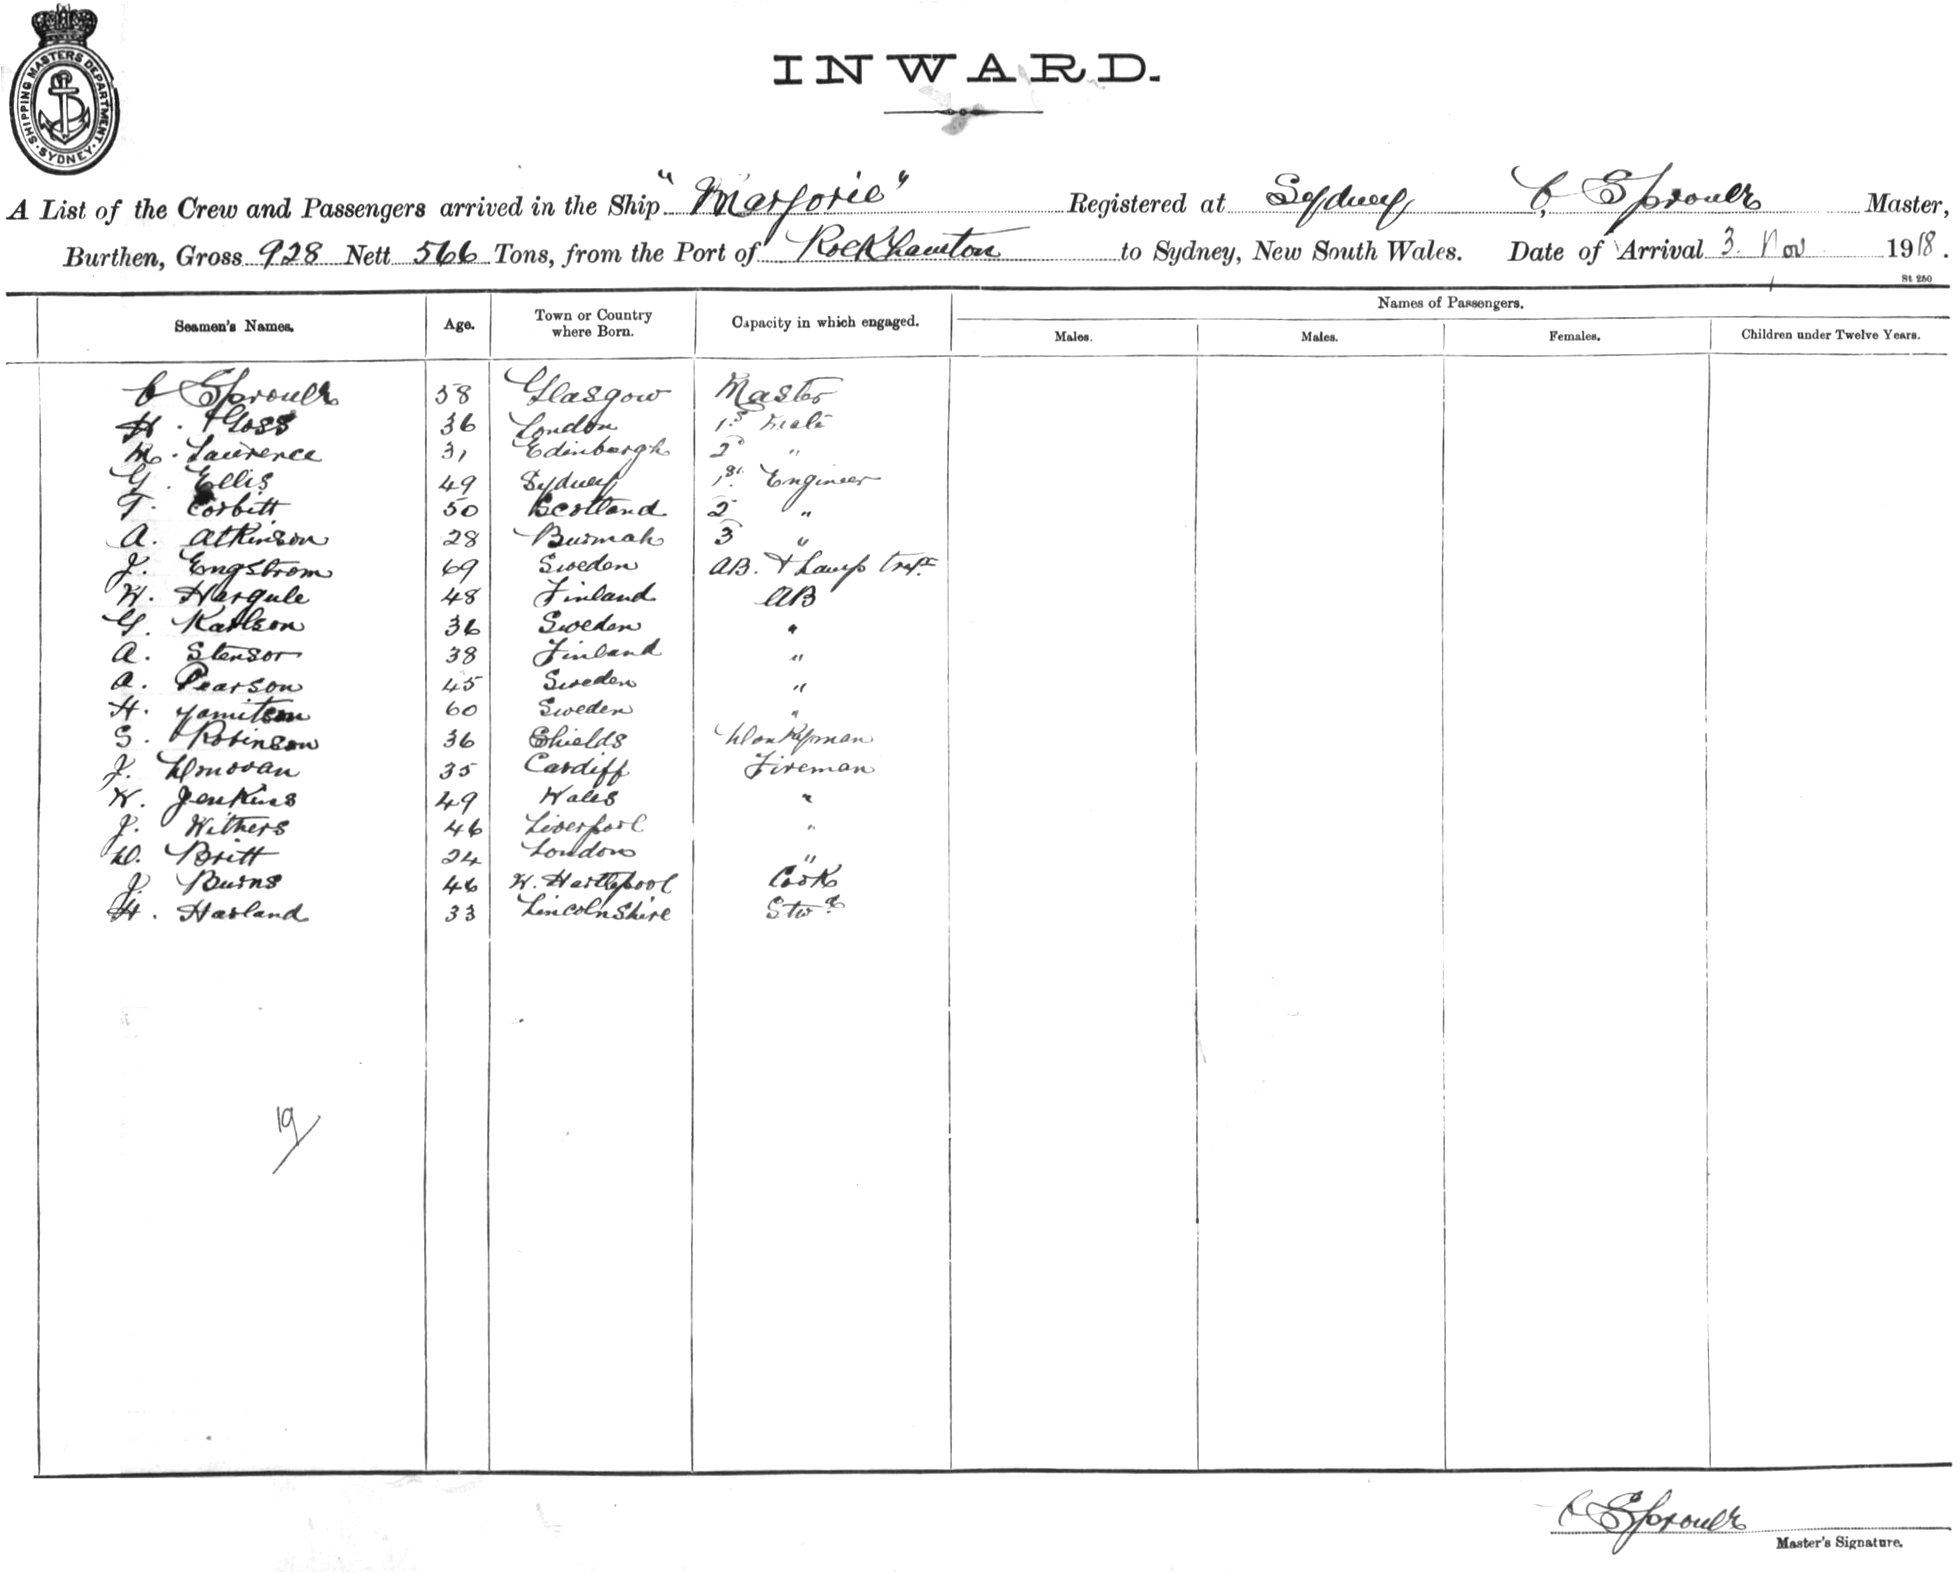 SHIPPING MASTERS DEPARTMENT. SYDNEY.
INWARD.
A List of the Crew and Passengers arrived in the Ship "Marjorie" Registered at Sydney, C Sproule Master,
Burthen, Gross 928 Nett 566 Tons, from the Port of Rockhamton to Sydney, New South Wales. Date of Arrival 3. Nov 1918.
St 250
Seamen's Names. Age. Town or Country where Born. Capacity in which engaged. Names of Passengers.
Males. Males. Females. Children under Twelve Years.
C Sproule 58 Glasgow Master
H. 36 London 1st Mate
M. Lawrence 31 Edinburgh 2d "
G. Ellis 49 Sydney 1st Engineer
T. Corbitt 50 Scotland 2 "
A. Atkinson 28 Burmah 3 "
J. Engstrom 69 Sweden AB. & Lamp trmr
W. Hergule 48 Finland AB
G. Karlson 36 Sweden "
A. Stensor 38 Finland "
A. Pearson 45 Sweden "
H. 60 Sweden "
S. Robinson 36 Shields Donkeyman
J. Donovan 35 Cardiff Fireman
W. Jenkins 49 Wales "
J. Withers 46 Liverpool "
D. Britt 24 London "
J. Burns 46 W. Hartlepool Cook
H. Harland 33 Lincolnshire Stwd
19
C Sproule
Master's Signature.